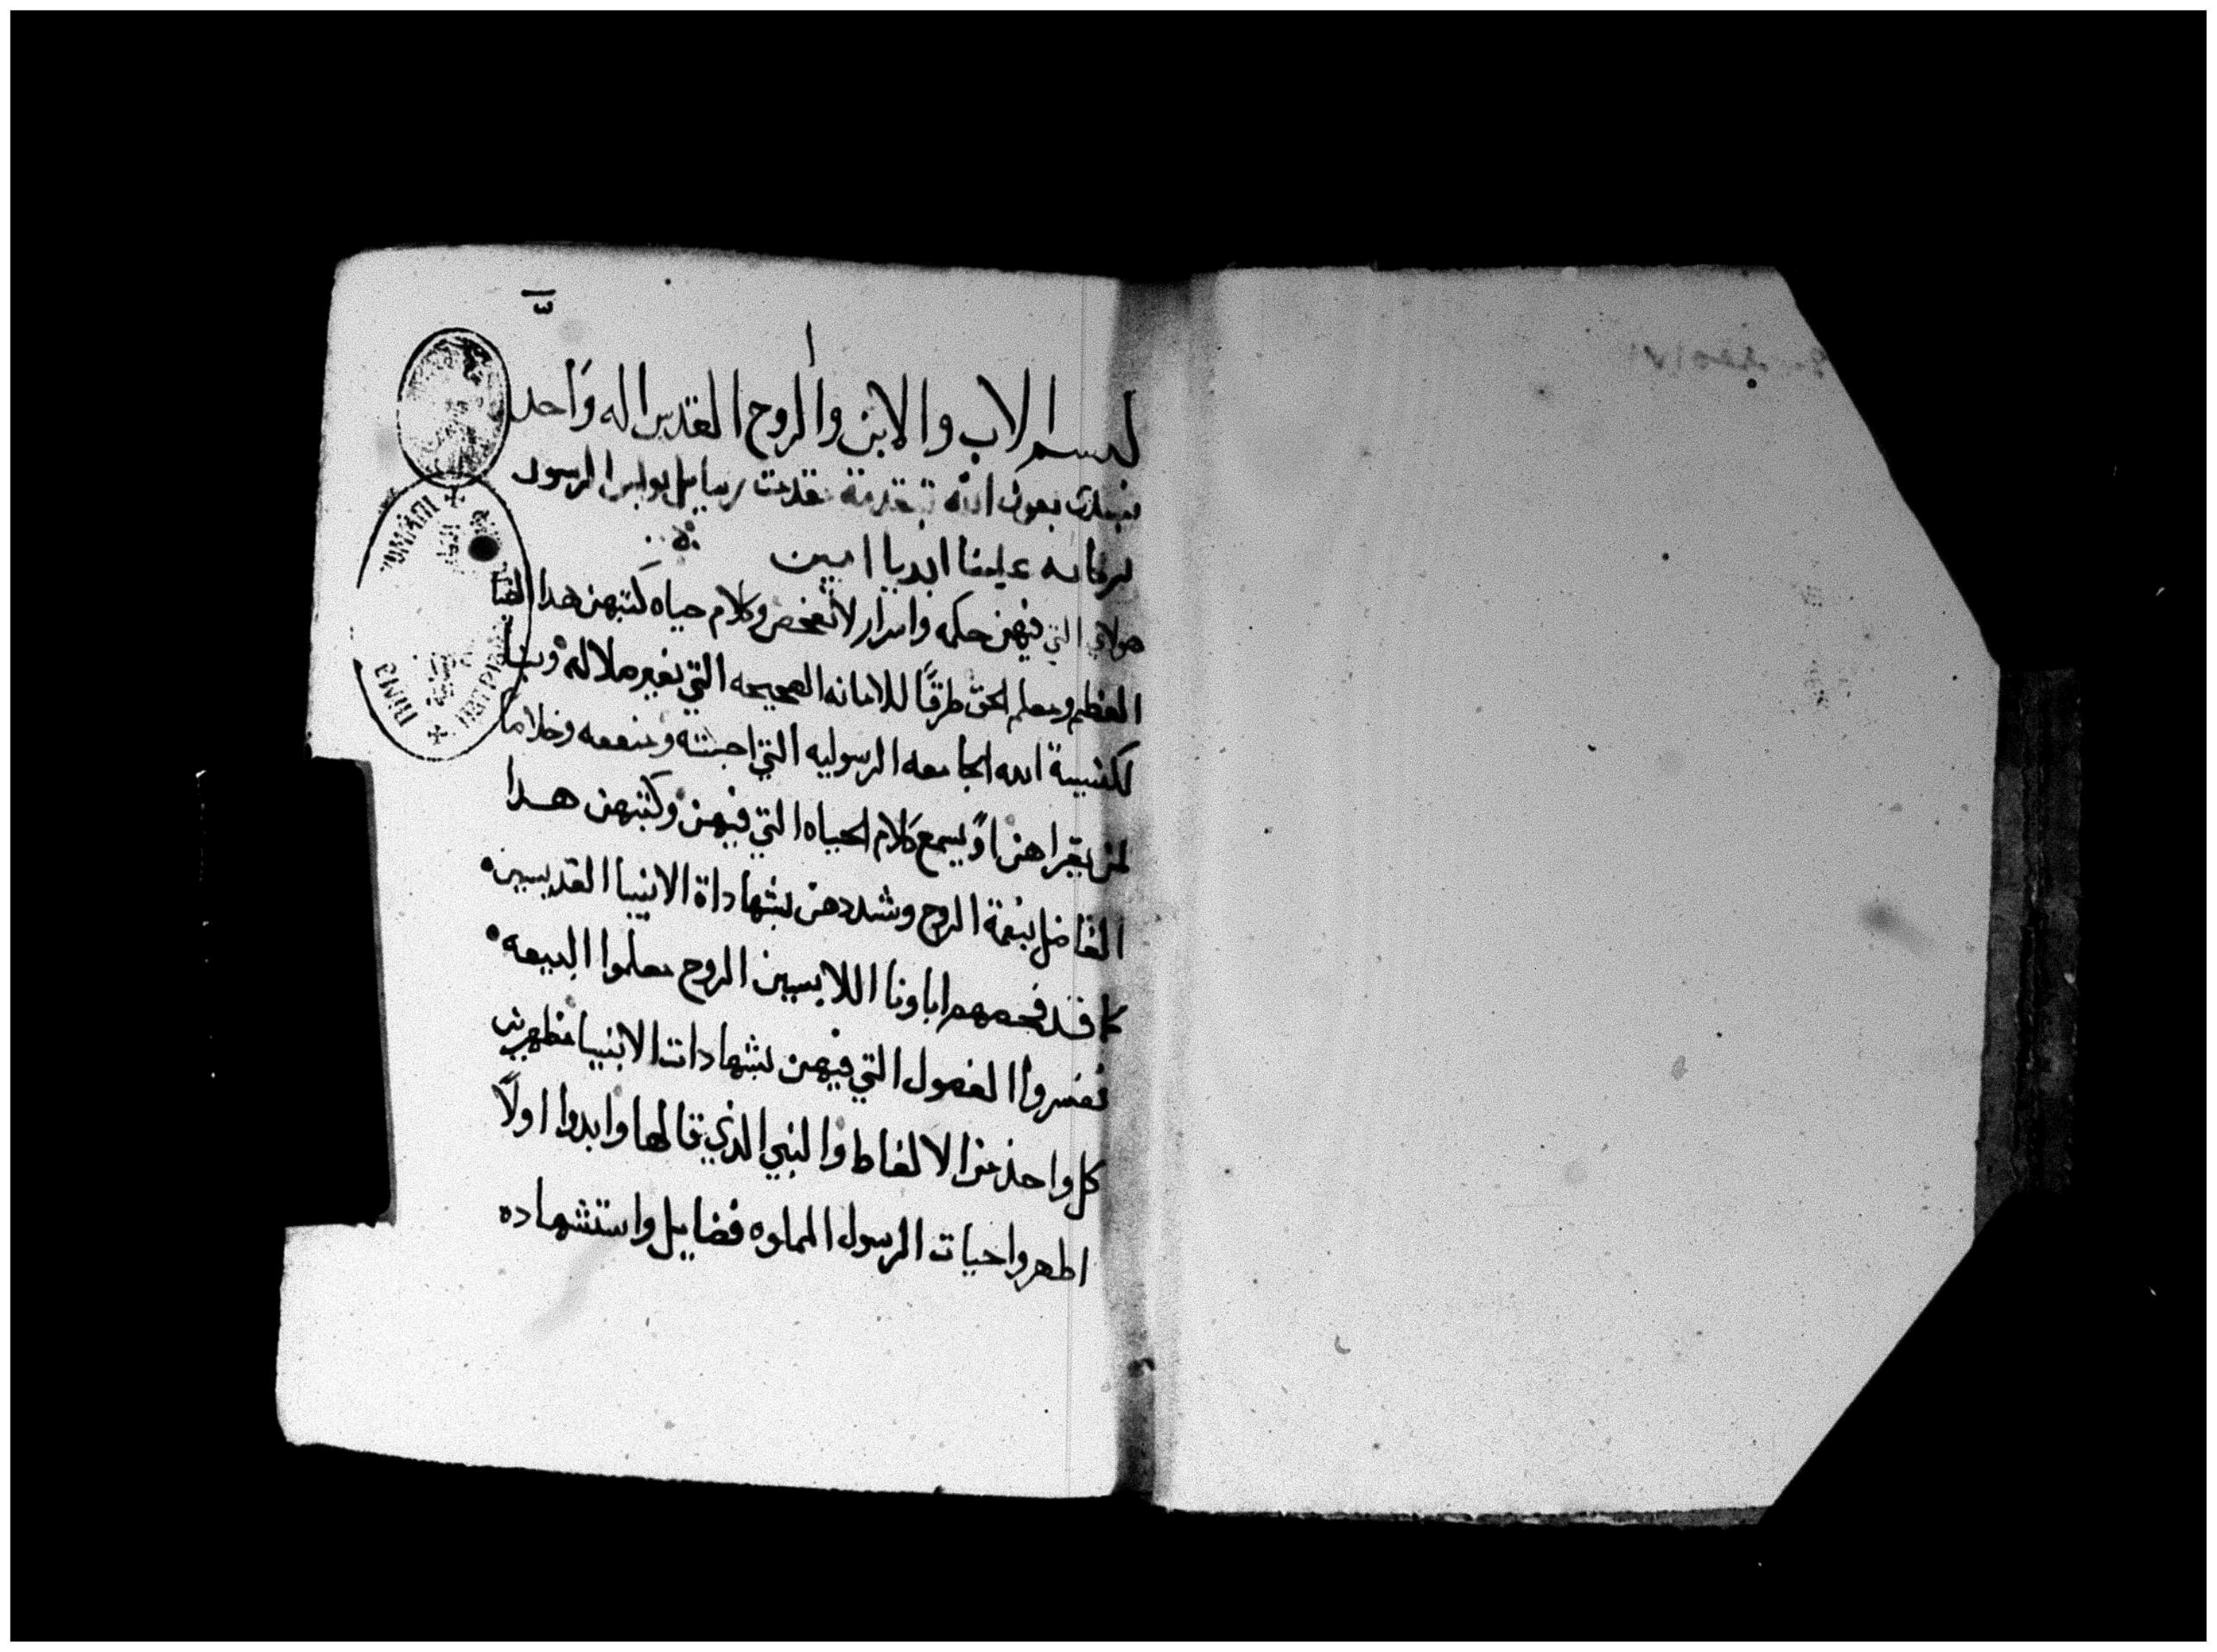 بسم الاب والابن والروح القدس اله واحد
نبتدى بعون الله بتقدمة تقدمت رسايل بولس الرسول
بركاته علينا ابديا امين
هولاي التي فيهن حكمه واسرار لا تفحص وكلام حياه كتبهن هدا
العظيم ومعلم الحق طرقًا للامانه الصحيحه التي بغير ملاله
لكنيسة الله الجامعه الرسوليه التي احبته ومنفعه وخلاصًا
لمن يقراهن او يسمع كلام الحياه التي فيهن وكتبهن هدا
الفاضل بنعمة الروح وشددهن بشهاداة الانبيا القديسين
كما قد فحصهم اباونا اللابسين الروح معلموا البيعه
فسروا الفصول التي فيهن بشهادات الانبيا مظهرين
كل واحد من الالفاط والنبي الذي قالها وابدوا اولاً
اطهروا حيات الرسول المملوه فضايل واستشهاده